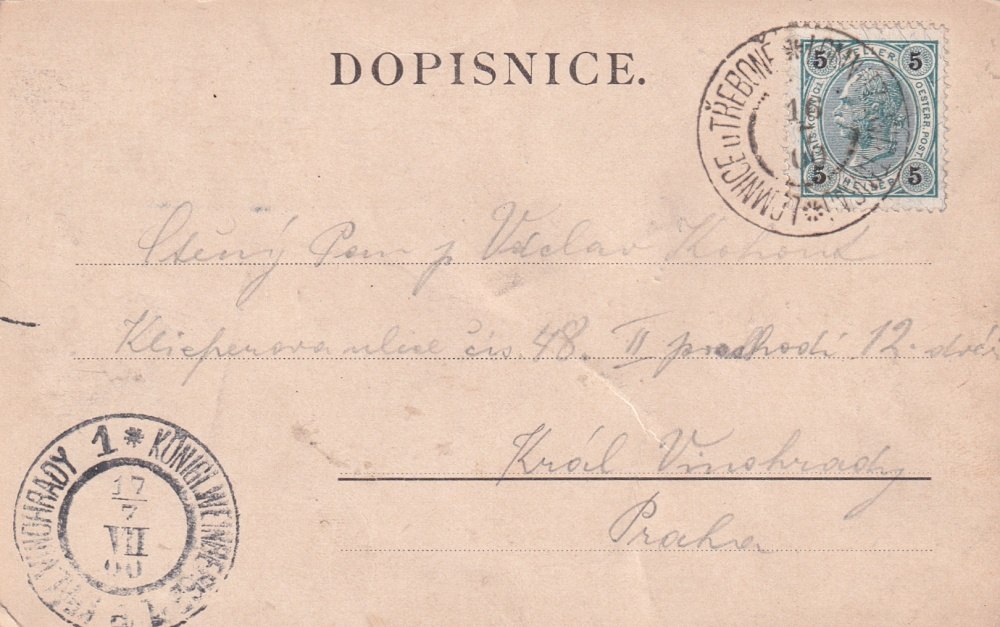 DOPISNICE.
5 HELLER 5
OESTERR. POST.
5 HELLER 5
LOMNICE u TŘEBONĚ
Ctěný Pan p Václav Kohout
Klicperova ulice čís 48. II poschodí 12. dvéř
Král Vinohrady
Praha
1 * KÖNIGL. WEINBERGE
KRÁL. VINOHRADY
17
7
VII
00